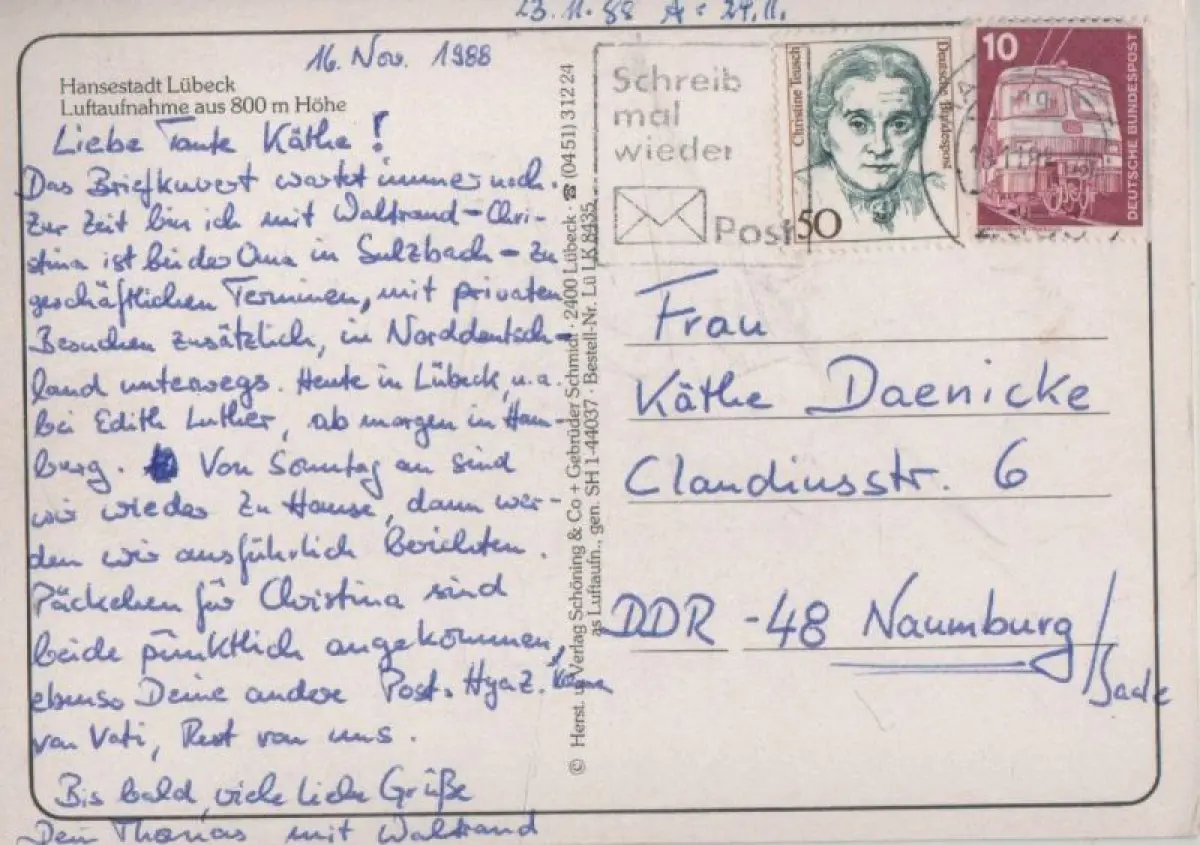 23.11.88 A: 24.11.
16. Nov. 1988
Hansestadt Lübeck
Luftaufnahme aus 800 m Höhe
Liebe Tante Käthe!
Das Briefkuvert wartet immer noch.
Zur Zeit bin ich mit Waltraud – Chri-
stina ist bei der Oma in Sulzbach – zu
geschäftlichen Terminen, mit privaten
Besuchen zusätzlich, in Norddeutsch-
land unterwegs. Heute in Lübeck, u.a.
bei Edith Luther, ab morgen in Ham-
burg. Von Sonntag an sind
wir wieder zu Hause, dann wer-
den wir ausführlich berichten.
Päckchen für Christina sind
beide pünktlich angekommen,
ebenso Deine andere Post. Hyaz.
von Vati, Rest von uns.
Bis bald, viele liebe Grüße
Dein Thomas mit Waltraud
© Herst. u. Verlag Schöning & Co + Gebrüder Schmidt · 2400 Lübeck · ☎ (0451) 3 12 24
as Luftaufn., gen. SH 1-44037 · Bestell-Nr. Lü LK 8435
Schreib
mal
wieder
Post
Christine Teusch
Deutsche Bundespost
50
10
DEUTSCHE BUNDESPOST
Frau
Käthe Daenicke
Claudiusstr. 6
DDR -48 Naumburg/
Saale